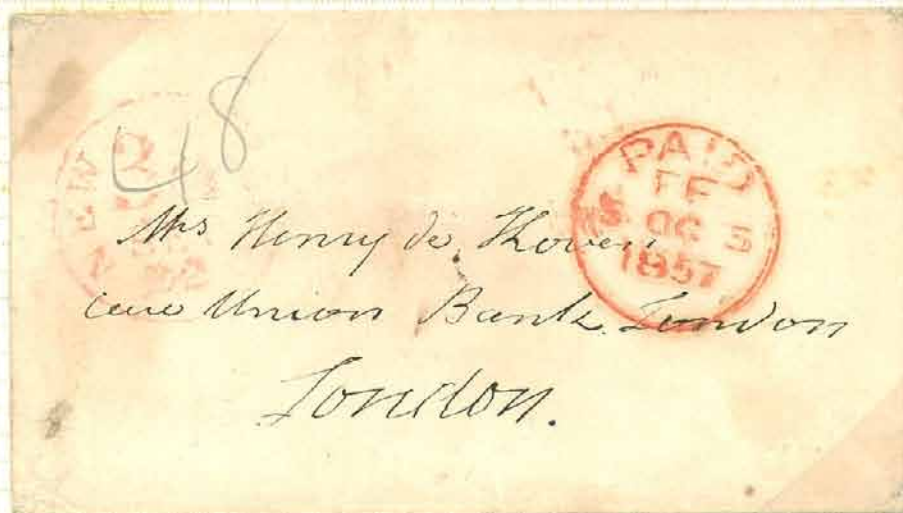 48
NEW
PAID
OC 3
1857
Mrs Henry de Koven
care Union Bank London
London.